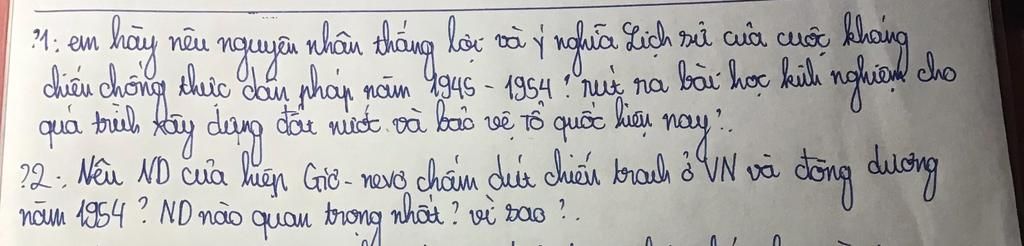 ?1: em hãy nêu nguyên nhân thắng lợi và ý nghĩa Lịch sử của cuộc kháng
chiến chống thực dân pháp năm 1945 - 1954? rút ra bài học kinh nghiệm cho
quá trình xây dựng đất nước và bảo vệ tổ quốc hiện nay?.
?2: Nêu ND của hiệp Giơ-nevơ chấm dứt chiến tranh ở VN và đông dương
năm 1954? ND nào quan trọng nhất? vì sao?.